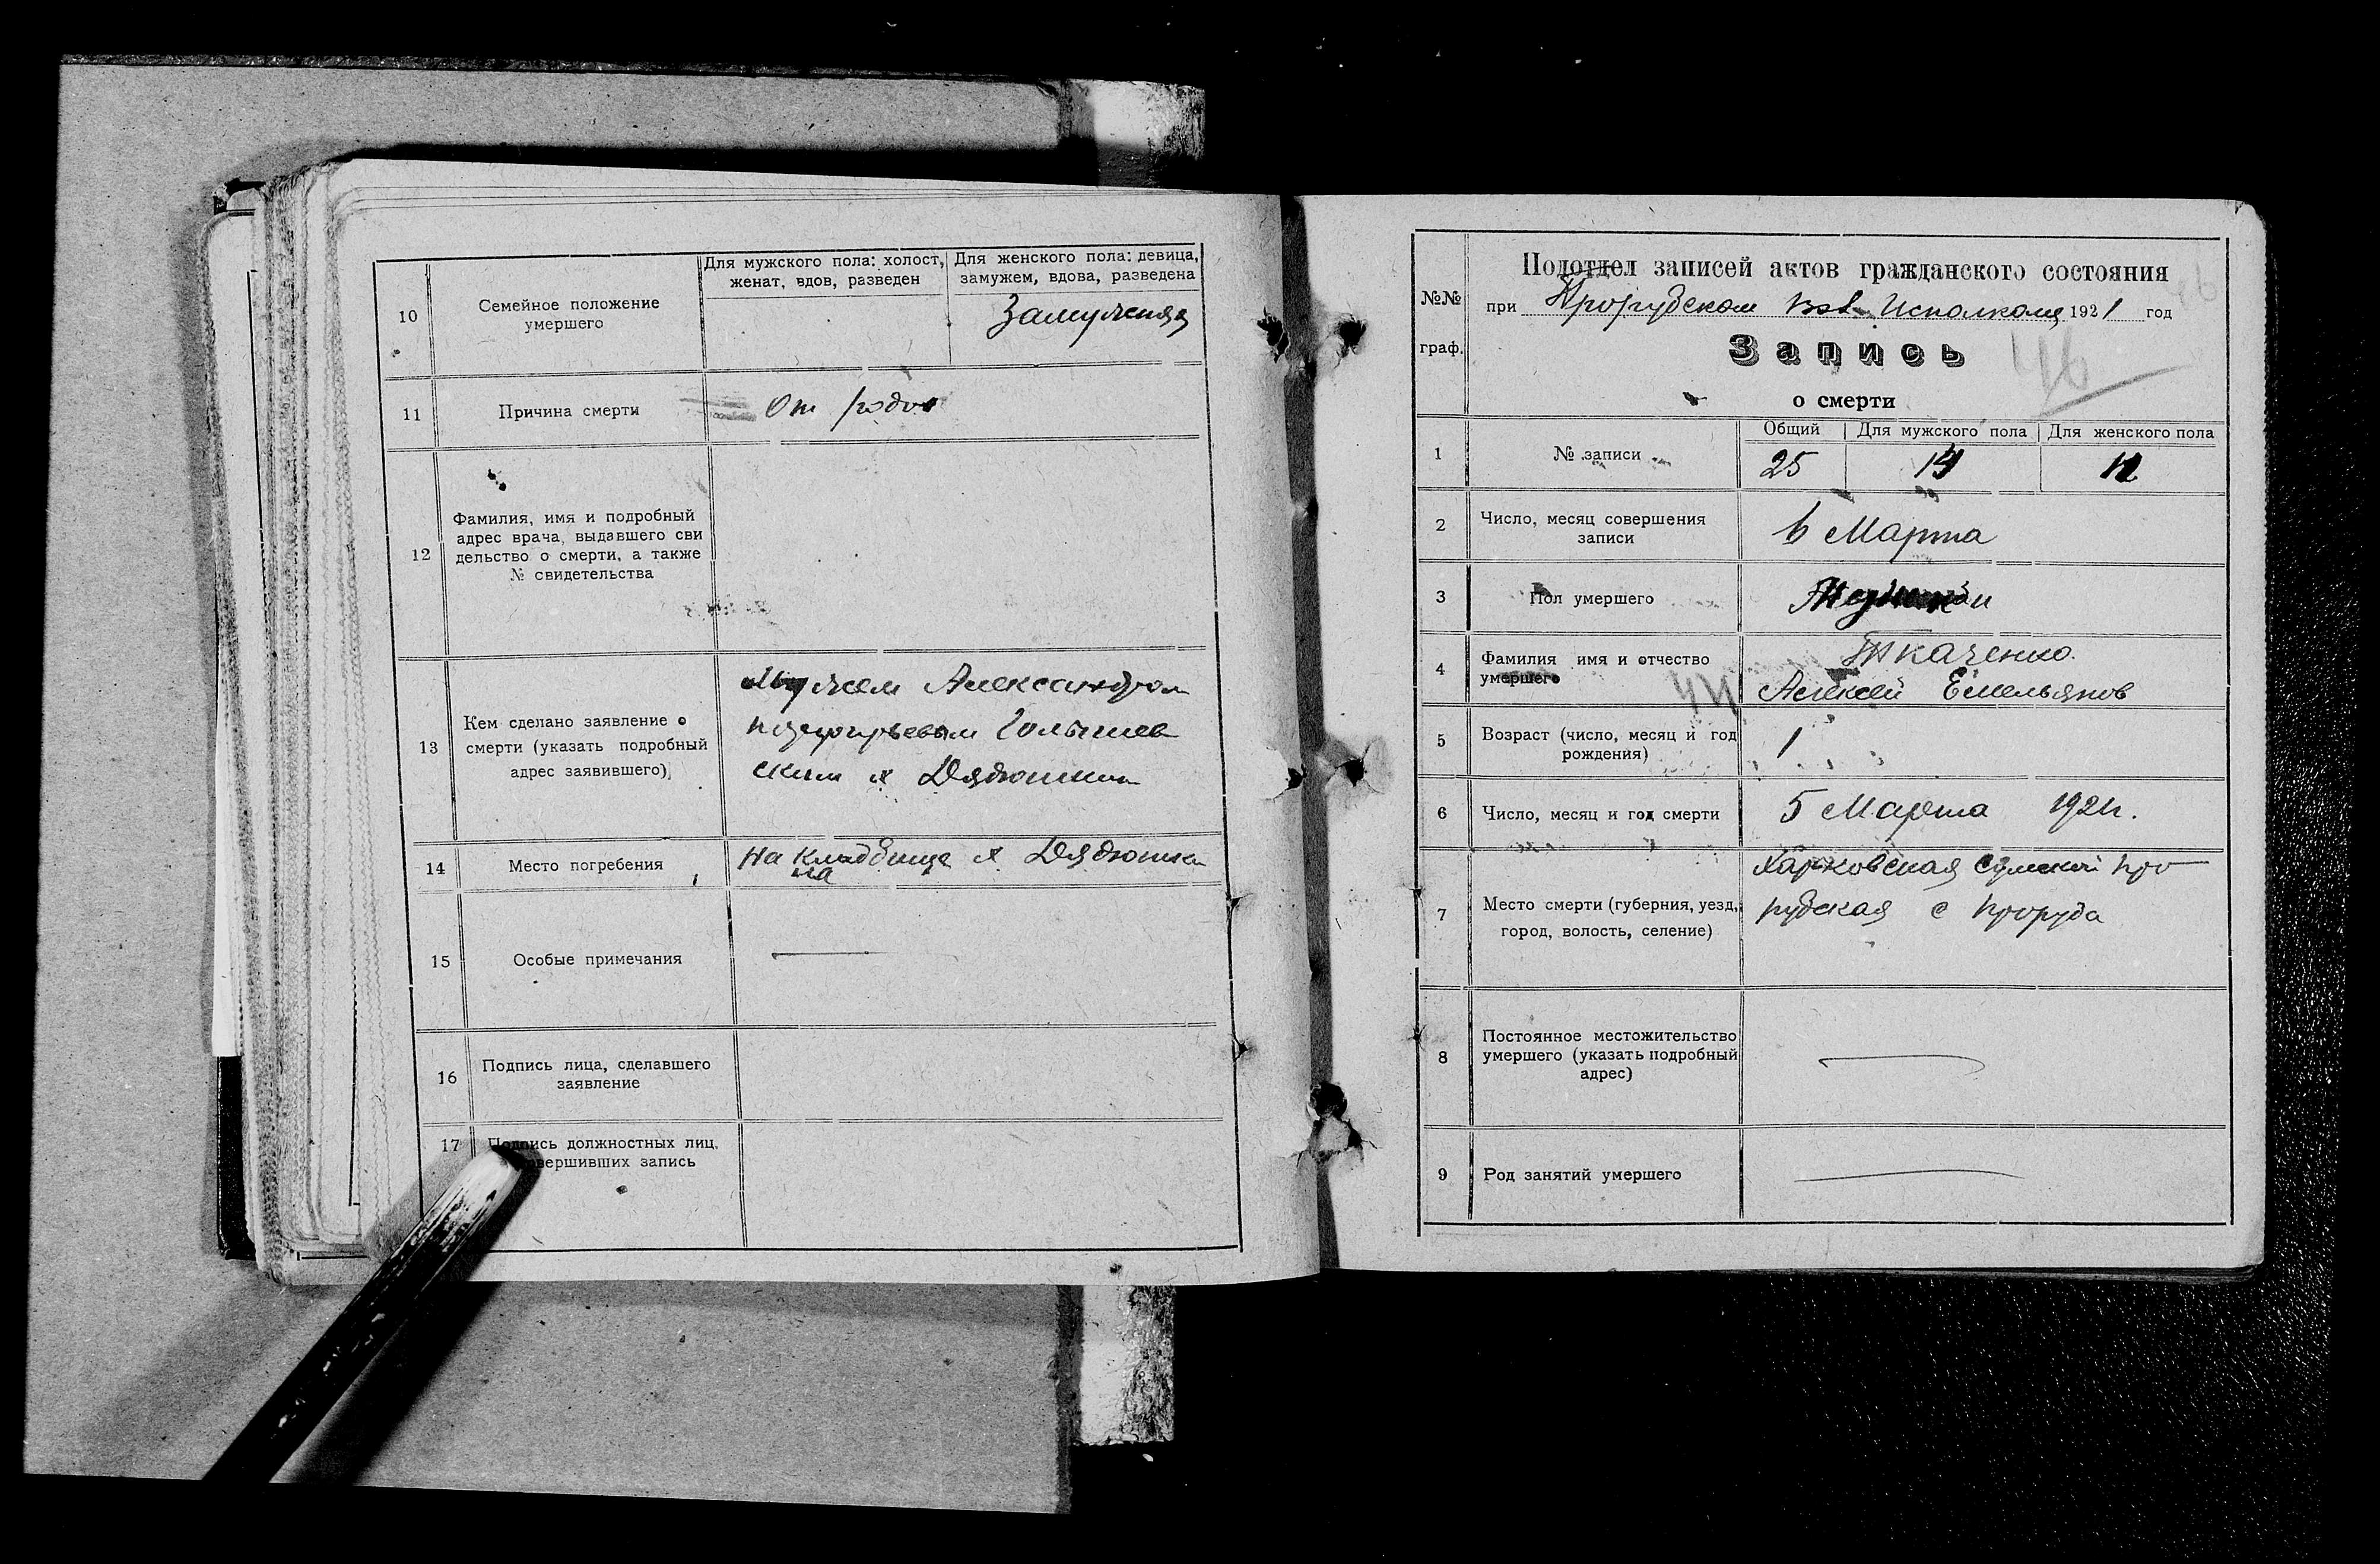 10
Семейное положение
умершего
Для мужского пола: холост,
женат, вдов, разведен
Для женского пола: девица,
замужем, вдова, разведена
Замужняя
11
Причина смерти
От родов
12
Фамилия, имя и подробный
адрес врача, выдавшего сви
дельство о смерти, а также
№ свидетельства
13
Кем сделано заявление о
смерти (указать подробный
адрес заявившего)
Мужем Александром
ским х Дядюшкин
14
Место погребения
На кладбище х Дядюшки
на
15
Особые примечания
16
Подпись лица, сделавшего
заявление
17
Подпись должностных лиц,
совершивших запись
№№
граф.
Подотдел записей актов гражданского состояния
при Прорубском Вол. Исполкоме 1921 год
Запись
46
о смерти
1
№ записи
Общий
Для мужского пола
Для женского пола
25
14
2
Число, месяц совершения
записи
6 Марта
3
Пол умершего
4
Фамилия имя и отчество
умершего
44
Ткаченко
Алексей Емельянов
5
Возраст (число, месяц и год
рождения)
1
6
Число, месяц и год смерти
5 Марта 1921г.
7
Место смерти (губерния, уезд,
город, волость, селение)
Харковская Сумской Про
рубская с Проруба
8
Постоянное местожительство
умершего (указать подробный
адрес)
9
Род занятий умершего